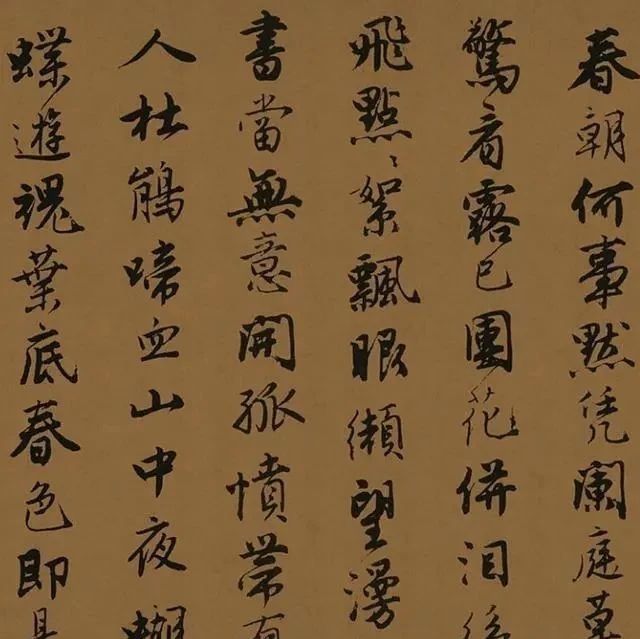 春朝何事默凭闌庭草
驚看露已團花併泪絲
飛點々絮飄眼纈望漫
書當無意開孤憤帶有
人杜鵑啼血山中夜蝴
蝶遊魂葉底春色即是